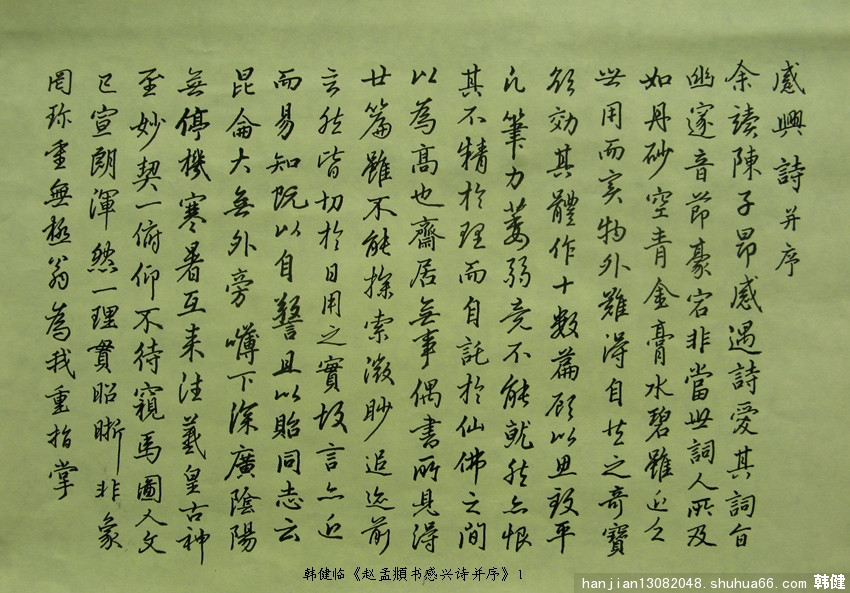 感興詩并序
余讀陳子昂感遇詩愛其詞旨
幽邃音節豪宕非當世詞人所及
如丹砂空青金膏水碧雖近乏
世用而实物外難得自然之奇寶
欲効其體作十數篇顧以思致平
凡筆力萎弱竟不能就然亦恨
其不精於理而自託於仙佛之間
以為高也齋居無事偶書所見得
廿篇雖不能探索微眇追迹前
言然皆切於日用之實故言亦近
而易知既以自警且以貽同志云
昆侖大無外旁礴下深廣陰陽
無停機寒暑互来往羲皇古神
至妙契一俯仰不待窺馬圖人文
已宣朗渾然一理貫昭晰非象
罔珍重無極翁為我重指掌
韩健临《赵孟頫书感兴诗并序》1
hanjian13082048.shuhua66.com 韩健